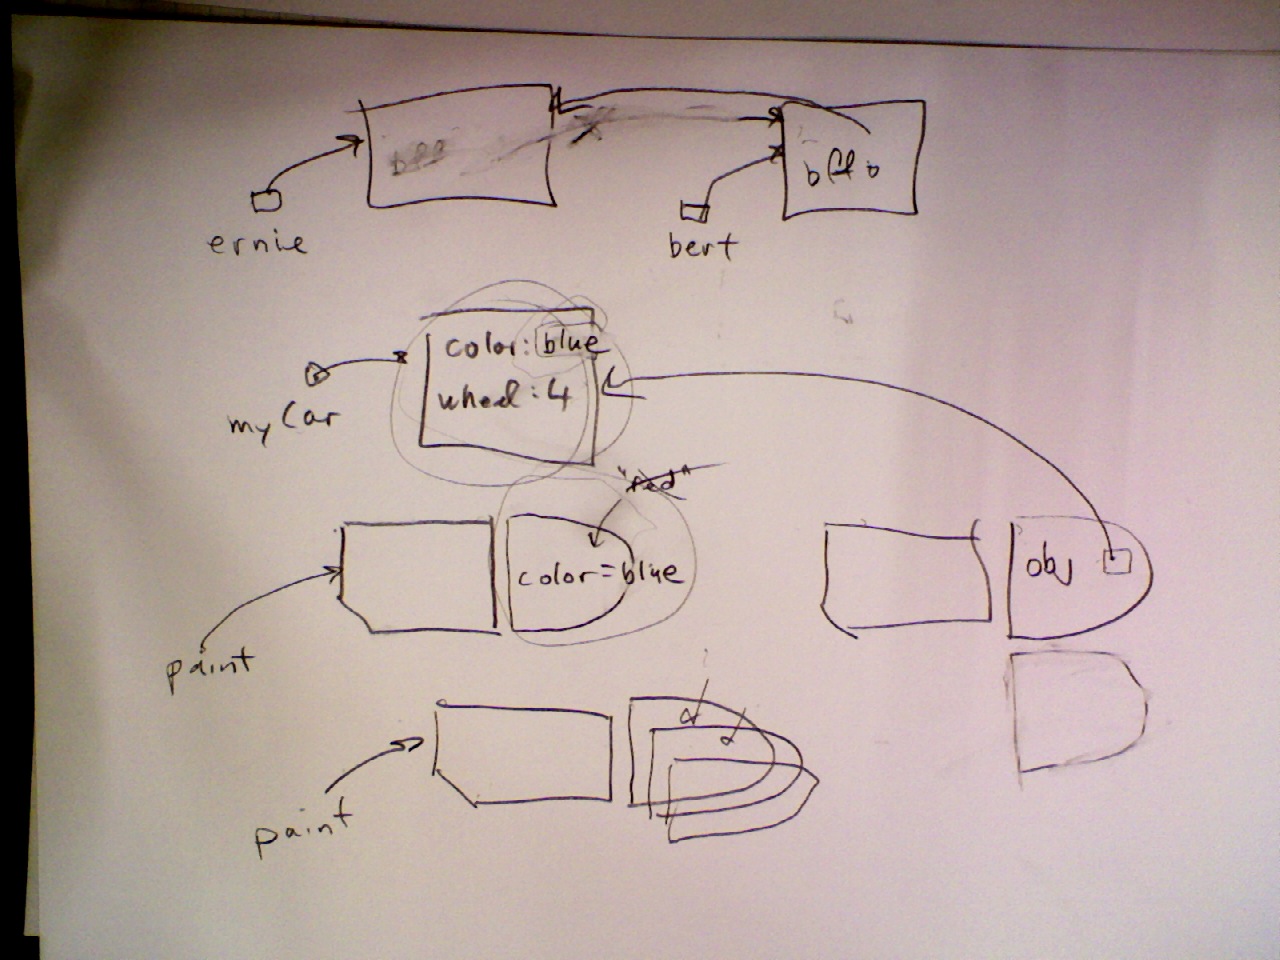 ernie
bert
color: blue
wheel: 4
my Car
"red"
color = blue
obj
paint
paint